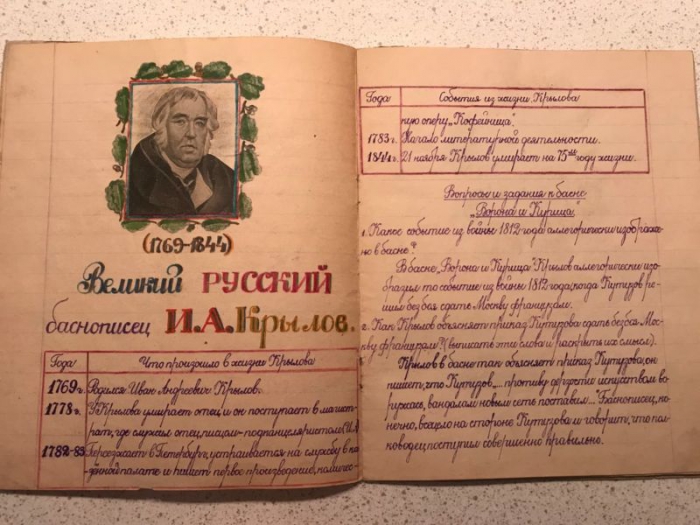 (1769-1844)
Великий РУССКИЙ
баснописец И.А.Крылов.
Года Что произошло в жизни Крылова
1769г. Родился Иван Андреевич Крылов.
1778г. У Крылова умирает отец, и он поступает в магист-
рат, где служил отец, писцом-подканцеляристом
1782-83 Переезжает в Петербург, устраивается на службу в ка-
зённой палате и пишет первое произведение, комичес-
Года События из жизни Крылова
кую оперу „Кофейница".
1783г. Начало литературной деятельности.
1844г. 21 ноября Крылов умирает на 75ом году жизни.
Вопросы и задания к басне
„Ворона и Курица"
1. Какое событие из войны 1812 года аллегорически изображе-
но в басне?
В басне „Ворона и Курица" Крылов аллегорически изо-
бразил то событие из войны 1812 года, когда Кутузов ре-
шил без боя сдать Москву французам.
2. Как Крылов объясняет приказ Кутузова сдать без боя Мос-
кву французам? (выписать эти слова и раскрыть их смысл).
Крылов в басне так объясняет приказ Кутузова, он
пишет, что Кутузов „... противу дерзости искусством во-
ружась, вандалам новым сеть поставил..." Баснописец, ко-
нечно, всецело на стороне Кутузова и говорит, что пол-
ководец поступил совершенно правильно.